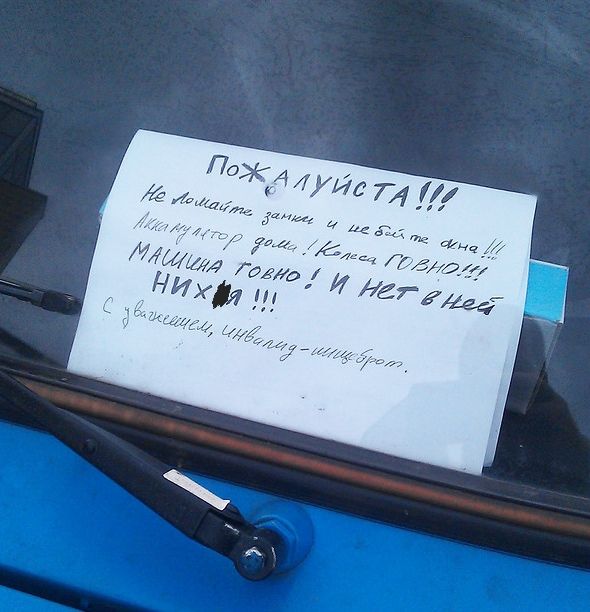 ПОЖАЛУЙСТА!!!
Не ломайте замки и не бейте окна!!!
Аккамулятор дома! Колеса ГОВНО!!!
МАШИНА ГОВНО! И НЕТ В НЕЙ
НИХ Я !!!
С уважением, инвалид-нищеброт.